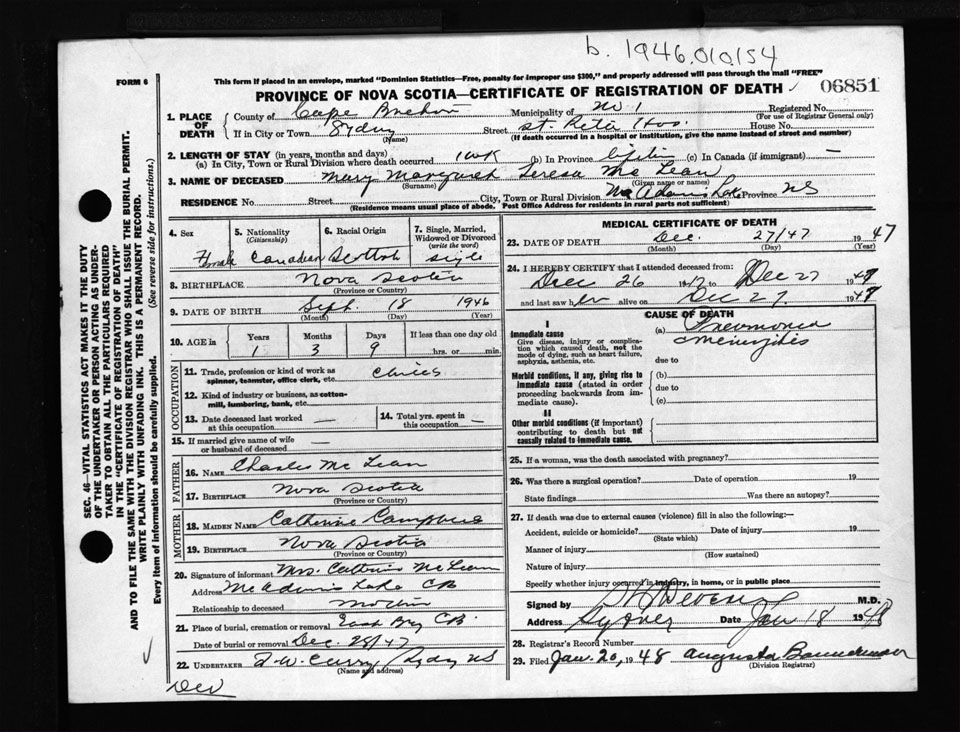 b. 1946.010154
FORM 6
This form if placed in an envelope, marked "Dominion Statistics—Free, penalty for improper use $300," and properly addressed will pass through the mail "FREE"
PROVINCE OF NOVA SCOTIA—CERTIFICATE OF REGISTRATION OF DEATH 06851
1. PLACE OF DEATH
County of Cape Breton Municipality of No 1 Registered No.
(For use of Registrar General only)
If in City or Town Sydney Street St Rita Hos. House No.
(Name) (If death occurred in a hospital or institution, give the name instead of street and number)
2. LENGTH OF STAY (in years, months and days)
(a) In City, Town or Rural Division where death occurred 1 wk (b) In Province Lifetime (c) In Canada (if immigrant) —
3. NAME OF DECEASED Mary Margaret Teresa Mc Lean
(Surname) (Given name or names)
RESIDENCE No. Street City, Town or Rural Division Mc Adams Lake Province NS
(Residence means usual place of abode. Post Office Address for residents in rural parts not sufficient)
4. Sex 5. Nationality (Citizenship) 6. Racial Origin 7. Single, Married, Widowed or Divorced (write the word)
Female Canadian Scottish single
8. BIRTHPLACE Nova Scotia
(Province or Country)
9. DATE OF BIRTH Sept. 18 1946
(Month) (Day) (Year)
10. AGE in Years Months Days If less than one day old
1 3 9 hrs. or min.
OCCUPATION
11. Trade, profession or kind of work as spinner, teamster, office clerk, etc.
12. Kind of industry or business, as cotton-mill, lumbering, bank, etc.
13. Date deceased last worked at this occupation —
14. Total yrs. spent in this occupation —
15. If married give name of wife or husband of deceased —
FATHER
16. NAME Charles Mc Lean
17. BIRTHPLACE Nova Scotia
(Province or Country)
MOTHER
18. MAIDEN NAME Catherine Campbell
19. BIRTHPLACE Nova Scotia
(Province or Country)
20. Signature of informant Mrs. Catherine McLean
Address McAdams Lake CB
Relationship to deceased Mother
21. Place of burial, cremation or removal East Bay CB.
Date of burial or removal Dec. 28/47
22. UNDERTAKER Curry Sydney NS
(Name and address)
MEDICAL CERTIFICATE OF DEATH
23. DATE OF DEATH Dec. 27/47 1947
(Month) (Day) (Year)
24. I HEREBY CERTIFY that I attended deceased from:
Dec 26 1947 to Dec 27 1947
and last saw her alive on Dec 27. 1947
CAUSE OF DEATH
I
Immediate cause (a) Pneumonia
Give disease, injury or complication which caused death, not the mode of dying, such as heart failure, asphyxia, asthenia, etc.
Meningitis
due to
Morbid conditions, if any, giving rise to immediate cause (stated in order proceeding backwards from immediate cause).
(b)
due to
(c)
II
Other morbid conditions (if important) contributing to death but not causally related to immediate cause.
25. If a woman, was the death associated with pregnancy?
26. Was there a surgical operation? Date of operation 19
State findings Was there an autopsy?
27. If death was due to external causes (violence) fill in also the following:—
Accident, suicide or homicide? Date of injury 19
(State which)
Manner of injury
(How sustained)
Nature of injury
Specify whether injury occurred in industry, in home, or in public place
Signed by M.D.
Address Sydney Date Jan 18 1948
28. Registrar's Record Number
29. Filed Jan. 20, 1948 Augusta
(Division Registrar)
SEC. 46—VITAL STATISTICS ACT MAKES IT THE DUTY
OF THE UNDERTAKER OR PERSON ACTING AS UNDERTAKER TO OBTAIN ALL THE PARTICULARS REQUIRED
IN THE "CERTIFICATE OF REGISTRATION OF DEATH"
AND TO FILE THE SAME WITH THE DIVISION REGISTRAR WHO SHALL ISSUE THE BURIAL PERMIT.
WRITE PLAINLY WITH UNFADING INK. THIS IS A PERMANENT RECORD.
Every item of information should be carefully supplied. (See reverse side for instructions.)